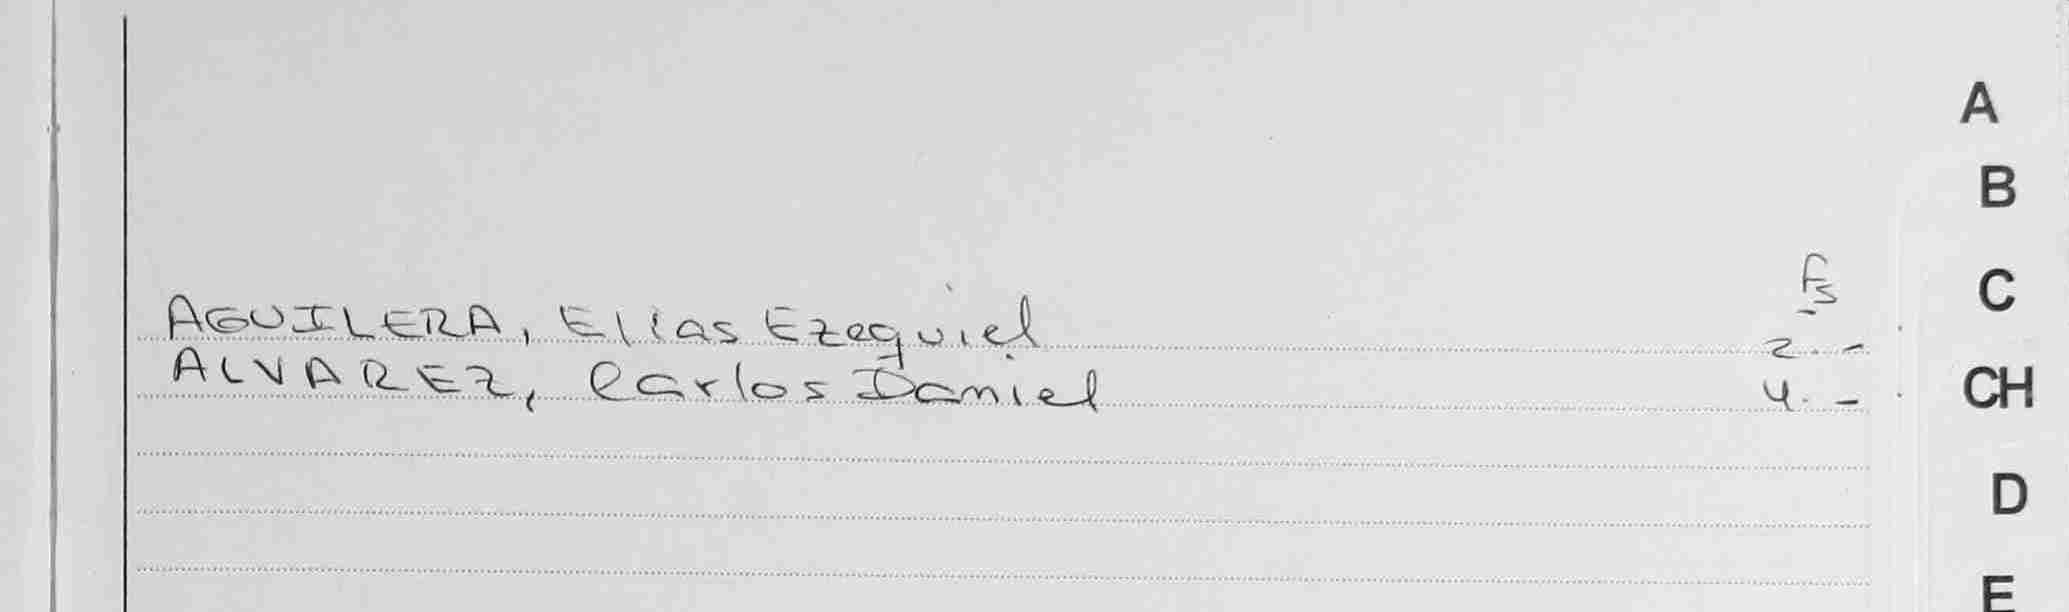 A
B
C
Fs
AGUILERA, Elias Ezequiel 2. -
ALVAREZ, Carlos Daniel 4. -
CH
D
E